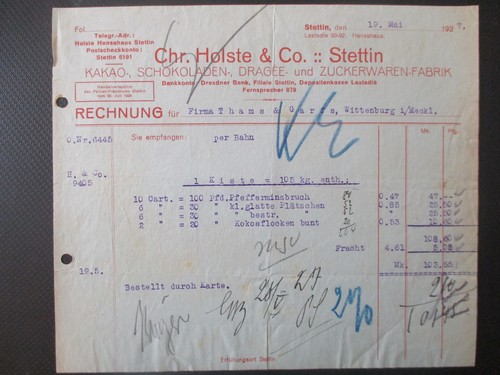 Fol.
Telegr.-Adr.:
Holste Hansahaus Stettin
Postscheckkonto:
Stettin 6191
Stettin, den 19. Mai 1927.
Lastadie 90-92, Hansahaus.
Chr. Holste & Co. :: Stettin
KAKAO-, SCHOKOLADEN-, DRAGEE- und ZUCKERWAREN-FABRIK
Bankkonto: Dresdner Bank, Filiale Stettin, Depositenkasse Lastadie
Fernsprecher 979
RECHNUNG für Firma Thams & Garfs, Wittenburg i/Meckl.
O.Nr.6445 Sie empfangen: per Bahn
H. & Co. 1 Kiste = 105 kg. enth.:
9405
10 Cart. = 100 Pfd. Pfefferminzbruch 0.47 47.--
6 " = 30 " kl.glatte Plätzchen 0.85 25.50
6 " = 30 " " bestr. " " 25.50
2 " = 20 " Kokosflocken bunt 0.53 10.60
108.60
Fracht 4.61 5.05
Mk. 103.55
19.5. Bestellt durch Karte.
Erfüllungsort Stettin